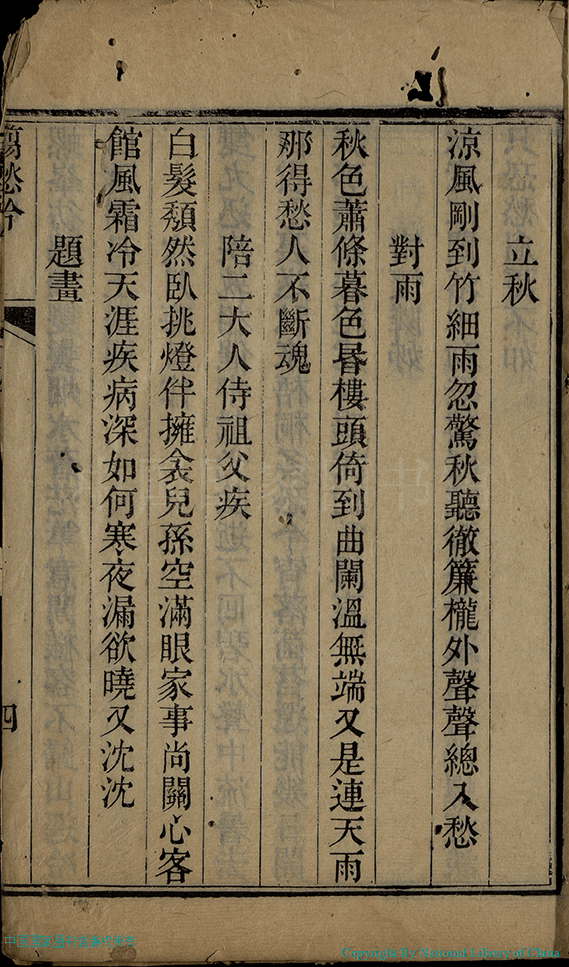 立秋
涼風剛到竹細雨忽驚秋聽徹簾櫳外聲聲總入愁
對雨
秋色蕭條暮色昬樓頭倚到曲闌溫無端又是連天雨
那得愁人不斷魂
陪二大人侍祖父疾
白髮頽然臥挑燈伴擁衾兒孫空滿眼家事尚關心客
館風霜冷天涯疾病深如何寒夜漏欲曉又沈沈
題畫
四
Copyright By National Library of China